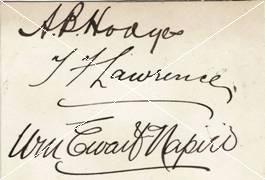 A.B. Hodges
T F Lawrence,
Wm Ewart Napier